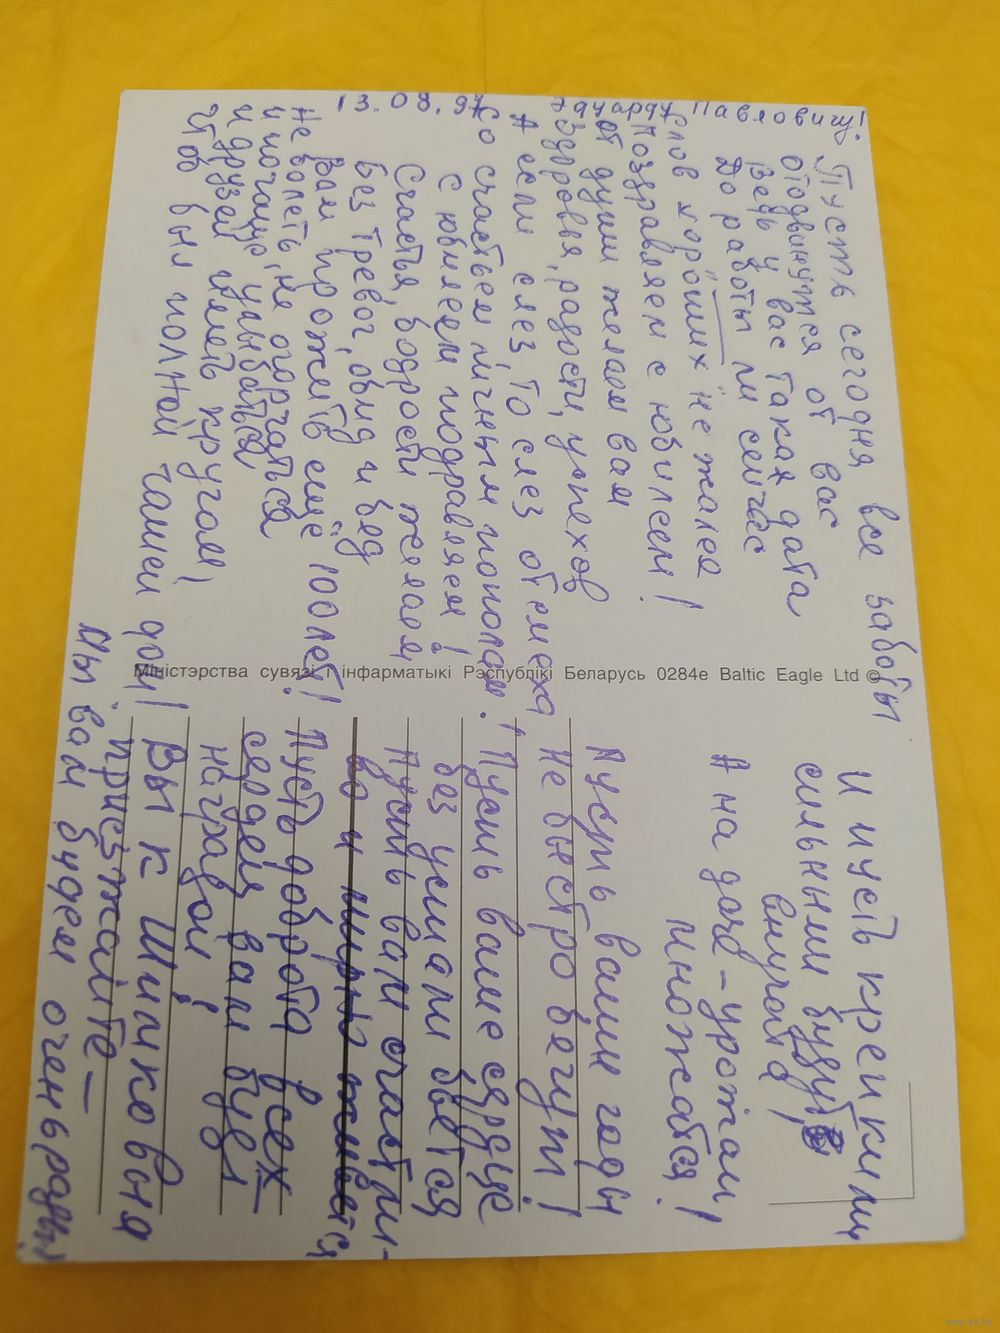 13.08.97
Эдуарду Павловичу!
Пусть сегодня все заботы
отодвинутся от вас
Ведь у вас такая дата
До работы ли сейчас
Слов хороших не жалея
Поздравляем с юбилеем!
От души желаем вам
Здоровья, радости, успехов
А если слез, то слез от смеха
Со счастьем личным пополам!
С юбилеем поздравляем!
Счастья, бодрости желаем
Без тревог, обид и бед
Вам прожить ещё 100 лет!
Не болеть, не огорчаться
и почаще улыбаться
и друзей иметь кругом,
Чтоб был полной чашей дом!
Міністэрства сувязі і інфарматыкі Рэспублікі Беларусь 0284е Baltic Eagle Ltd ©
И пусть крепкими
сильными будут
внучата,
А на даче - урожаи
множатся!
Пусть ваши годы
не быстро бегут!
Пусть ваше сердце
без устали бьется
Пусть вам счастли-
во и мирно живется
Пусть доброта всех
сердец вам будет
наградой!
Вы к Шинковым
приезжайте –
Мы вам будем очень рады!
www.ay.by